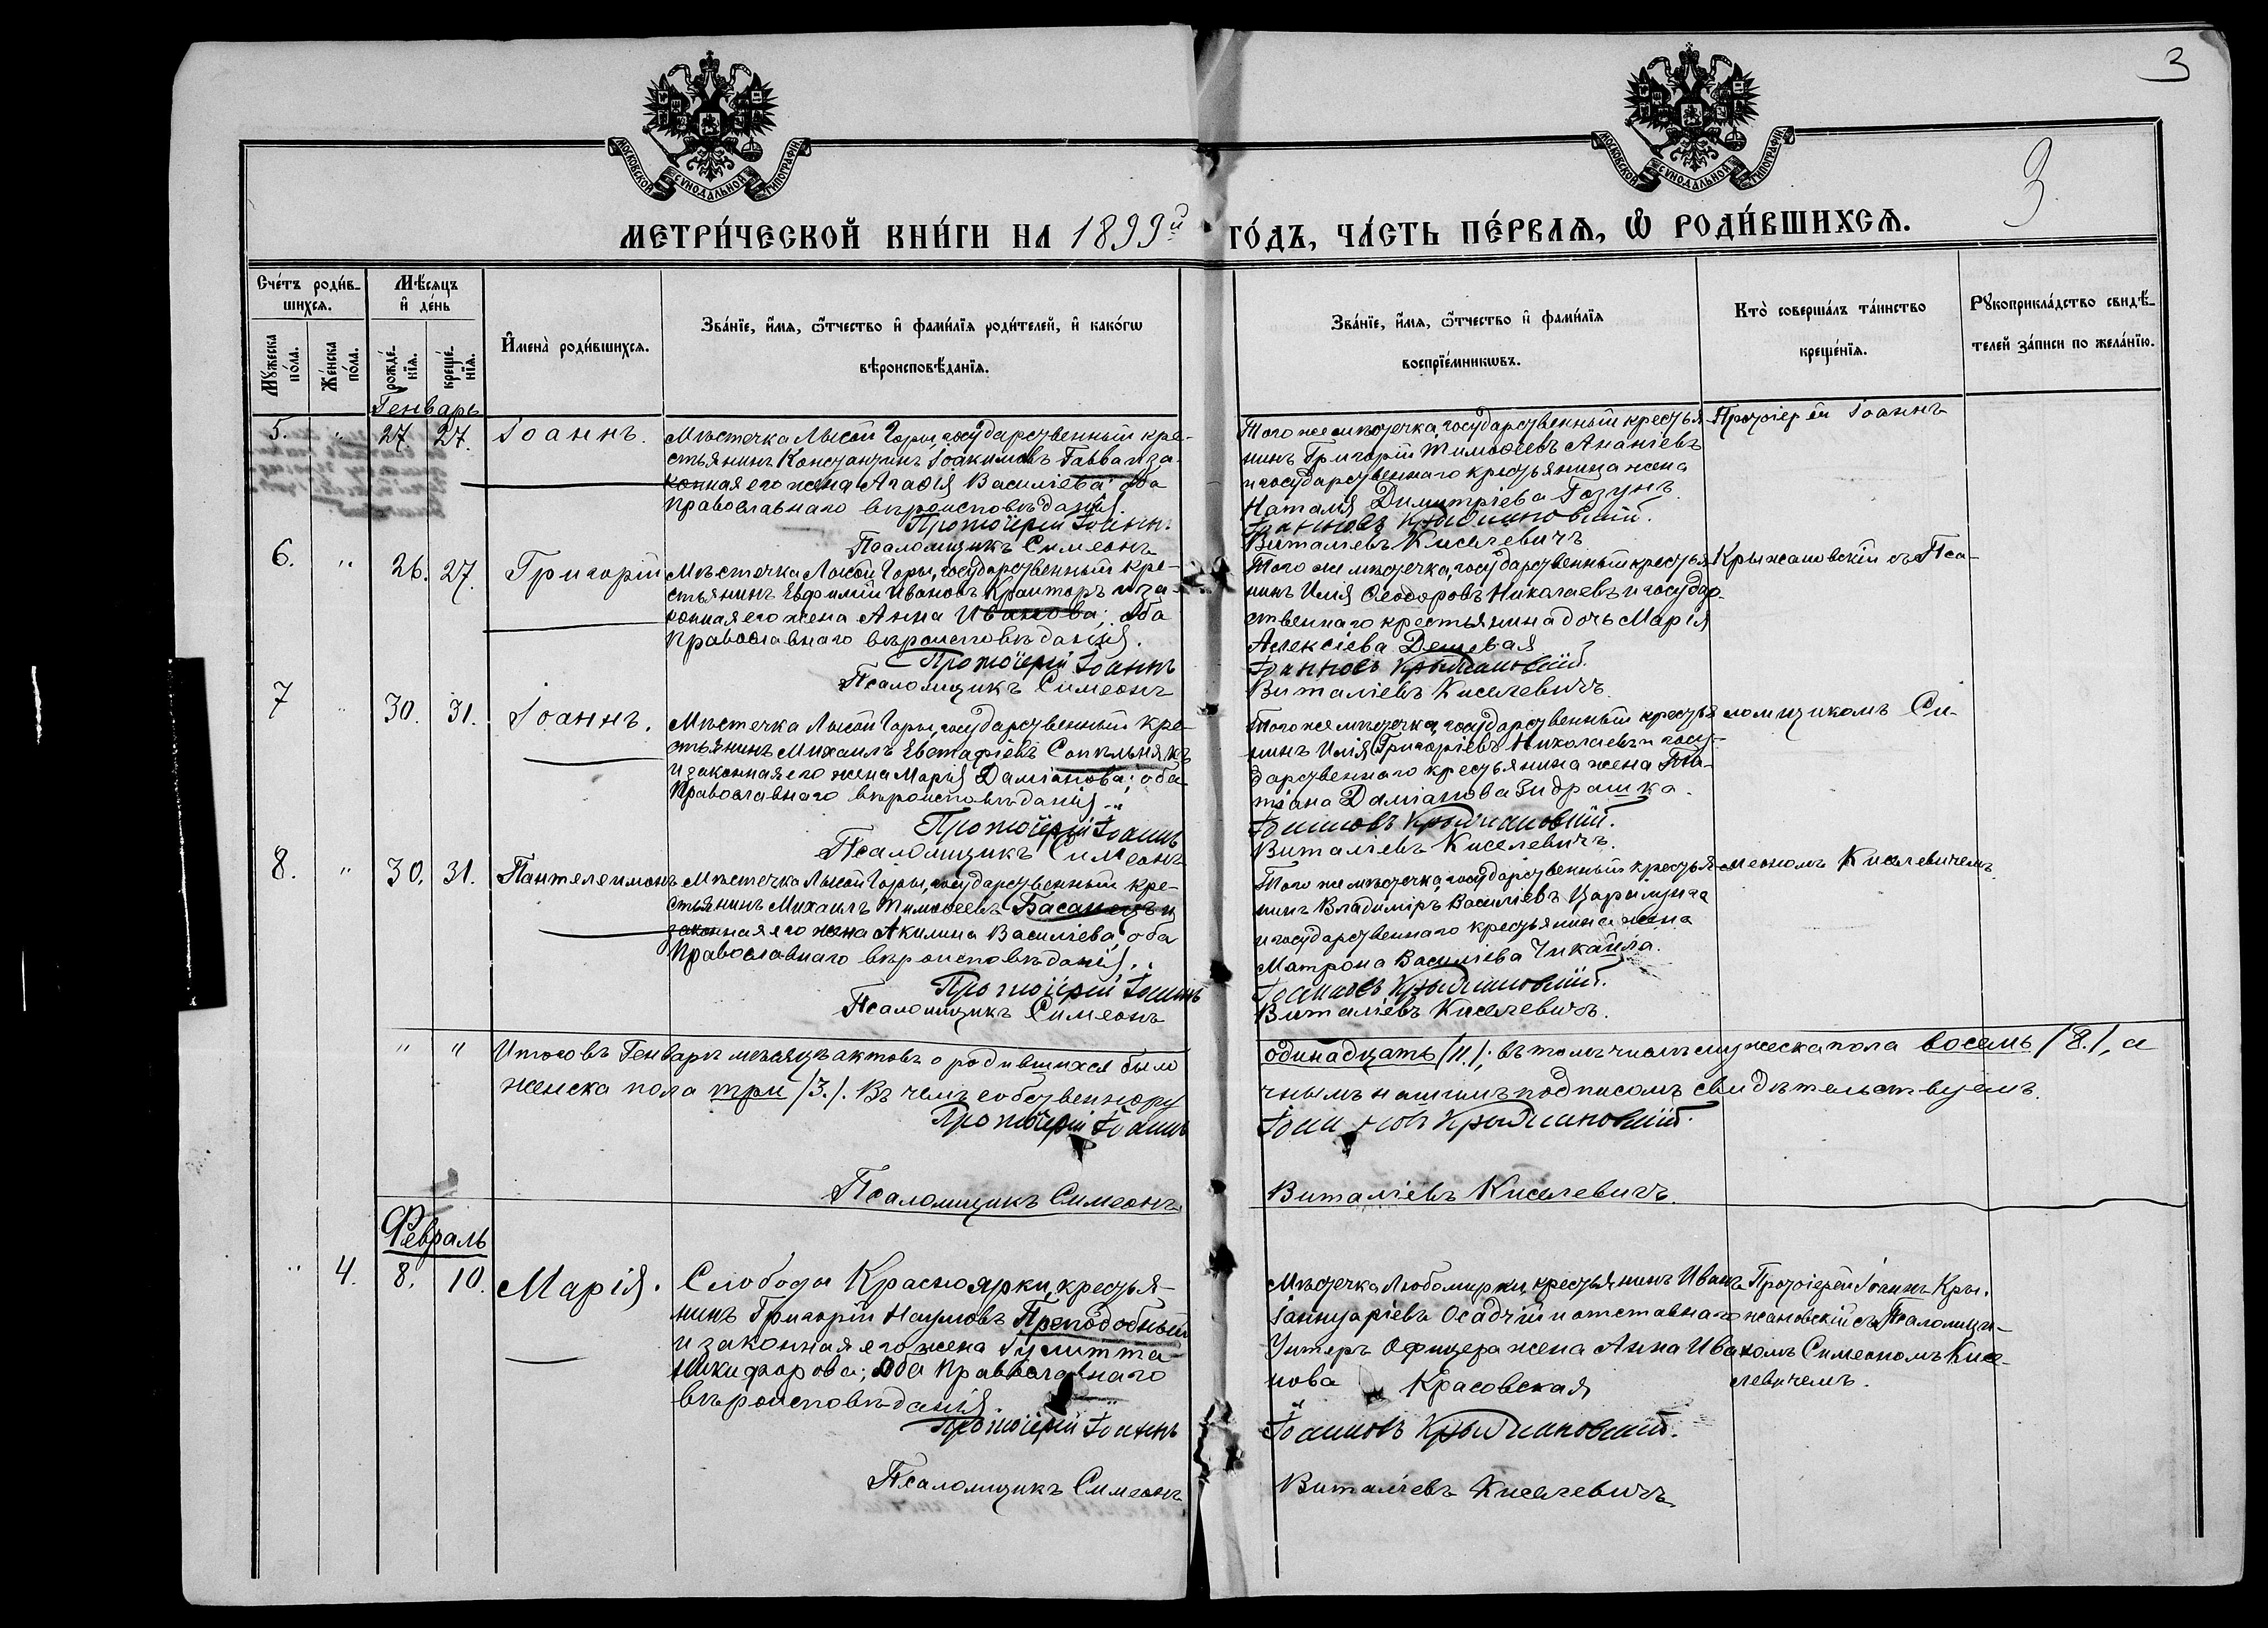 3
МОСКОВСКОЙ СУНОДАЛЬНОЙ ТИПОГРАФІИ
МОСКОВСКОЙ СУНОДАЛЬНОЙ ТИПОГРАФІИ
3
МЕТРИ́ЧЕСКОЙ КНИ́ГИ НА 1899й ГО́ДЪ, ЧА́СТЬ ПЕ́РВАѦ, Ѡ РОДИ́ВШИХСѦ.
Сче́тъ роди́в-
шихсѧ.
Мѣсяцъ
и де́нь
Мꙋ́жеска
по́ла.
Же́нска
по́ла.
рожде́-
нїѧ.
креще́-
нїѧ.
Имена̀ роди́вшихсѧ.
Зва́нїе, и́мѧ, ѻ́тчество и фами́лїѧ роди́телей, и како́гѡ
вѣроисповѣ́данїѧ.
Зва́нїе, и́мѧ, ѻ́тчество и фами́лїѧ
воспрїе́мникѡвъ.
Кто̀ соверша́лъ та́инство
креще́нїѧ.
Рꙋкоприкла́дство свидѣ́-
телей за́писи по жела́нїю.
Генварь
5. " 27. 27. Іоаннъ.
Мѣстечка Лысой Горы, государственный кре-
стьянинъ Константинъ Іоакимовъ Гавва и за-
конная его жена Агафія Василіева; оба
православнаго вѣроисповѣданія.
Протоіерей Іоаннъ
Псаломщикъ Симеонъ
Того же мѣстечка, государственный крестья-
нинъ Григорій Тимофеевъ Ананіевъ
и государственнаго крестьянина жена
Наталія Димитріева Гозунъ.
Іоанновъ Крыжановскій.
Виталіевъ Киселевичъ
Протоіерей Іоаннъ
6. " 26. 27. Григорій
Мѣстечка Лысой Горы, государственный кре-
стьянинъ Евфимій Ивановъ Крамторъ и за-
конная его жена Анна Иванова; оба
православнаго вѣроисповѣданія.
Протоіерей Іоаннъ
Псаломщикъ Симеонъ
Того же мѣстечка, государственный крестья-
нинъ Илія Ѳеодоровъ Николаевъ и государ-
ственнаго крестьянина дочь Марія
Алексіева Дешевая
Іоанновъ Крыжановскій.
Виталіевъ Киселевичъ.
Крыжановскій съ Пса-
7 " 30. 31. Іоаннъ.
Мѣстечка Лысой Горы, государственный кре-
стьянинъ Михаилъ Евстафіевъ Сопѣльнякъ
и законная его жена Марія Даміанова; оба
православнаго вѣроисповѣданія.
Протоіерей Іоаннъ
Псаломщикъ Симеонъ
Того же мѣстечка, государственный крестья-
нинъ Илія Григоріевъ Николаевъ и госу-
дарственнаго крестьянина жена Та-
тіана Даміанова Гидрашка.
Іоанновъ Крыжановскій.
Виталіевъ Киселевичъ.
ломщикомъ Си-
8. " 30. 31. Пантелеимонъ
Мѣстечка Лысой Горы, государственный кре-
стьянинъ Михаилъ Тимофеевъ Басанецъ и
законная его жена Акилина Василіева; оба
православнаго вѣроисповѣданія.
Протоіерей Іоаннъ
Псаломщикъ Симеонъ
Того же мѣстечка, государственный крестья-
нинъ Владиміръ Василіевъ Царилунга
и государственнаго крестьянина жена
Матрона Василіева Чикайла.
Іоанновъ Крыжановскій.
Виталіевъ Киселевичъ.
меономъ Киселевичемъ
" " Итого въ Генварѣ мѣсяцѣ актовъ о родившихся было одинадцать /11./; въ томъ числѣ мужеска пола восемь /8./, а
женска пола три /3./. Въ чемъ собственнору чнымъ нашимъ подписомъ свидѣтельствуемъ.
Протоіерей Іоаннъ Іоанновъ Крыжановскій.
Псаломщикъ Симеонъ Виталіевъ Киселевичъ.
Февраль
" 4. 8. 10. Марія.
Слободы Красноярки, крестья-
нинъ Григорій Наумовъ Преподобный
и законная его жена Іулитта
Никифорова; оба православнаго
вѣроисповѣданія.
Протоіерей Іоаннъ
Псаломщикъ Симеонъ
Мѣстечка Любомирки, крестьянинъ Иванъ
Іаннуаріевъ Осадчій и отставнаго
Унтеръ Офицера жена Анна Ива-
нова Красовская
Іоанновъ Крыжановскій.
Виталіевъ Киселевичъ
Протоіерей Іоаннъ Кры-
жановскій съ Псаломщи-
комъ Симеономъ Кисе-
левичемъ.